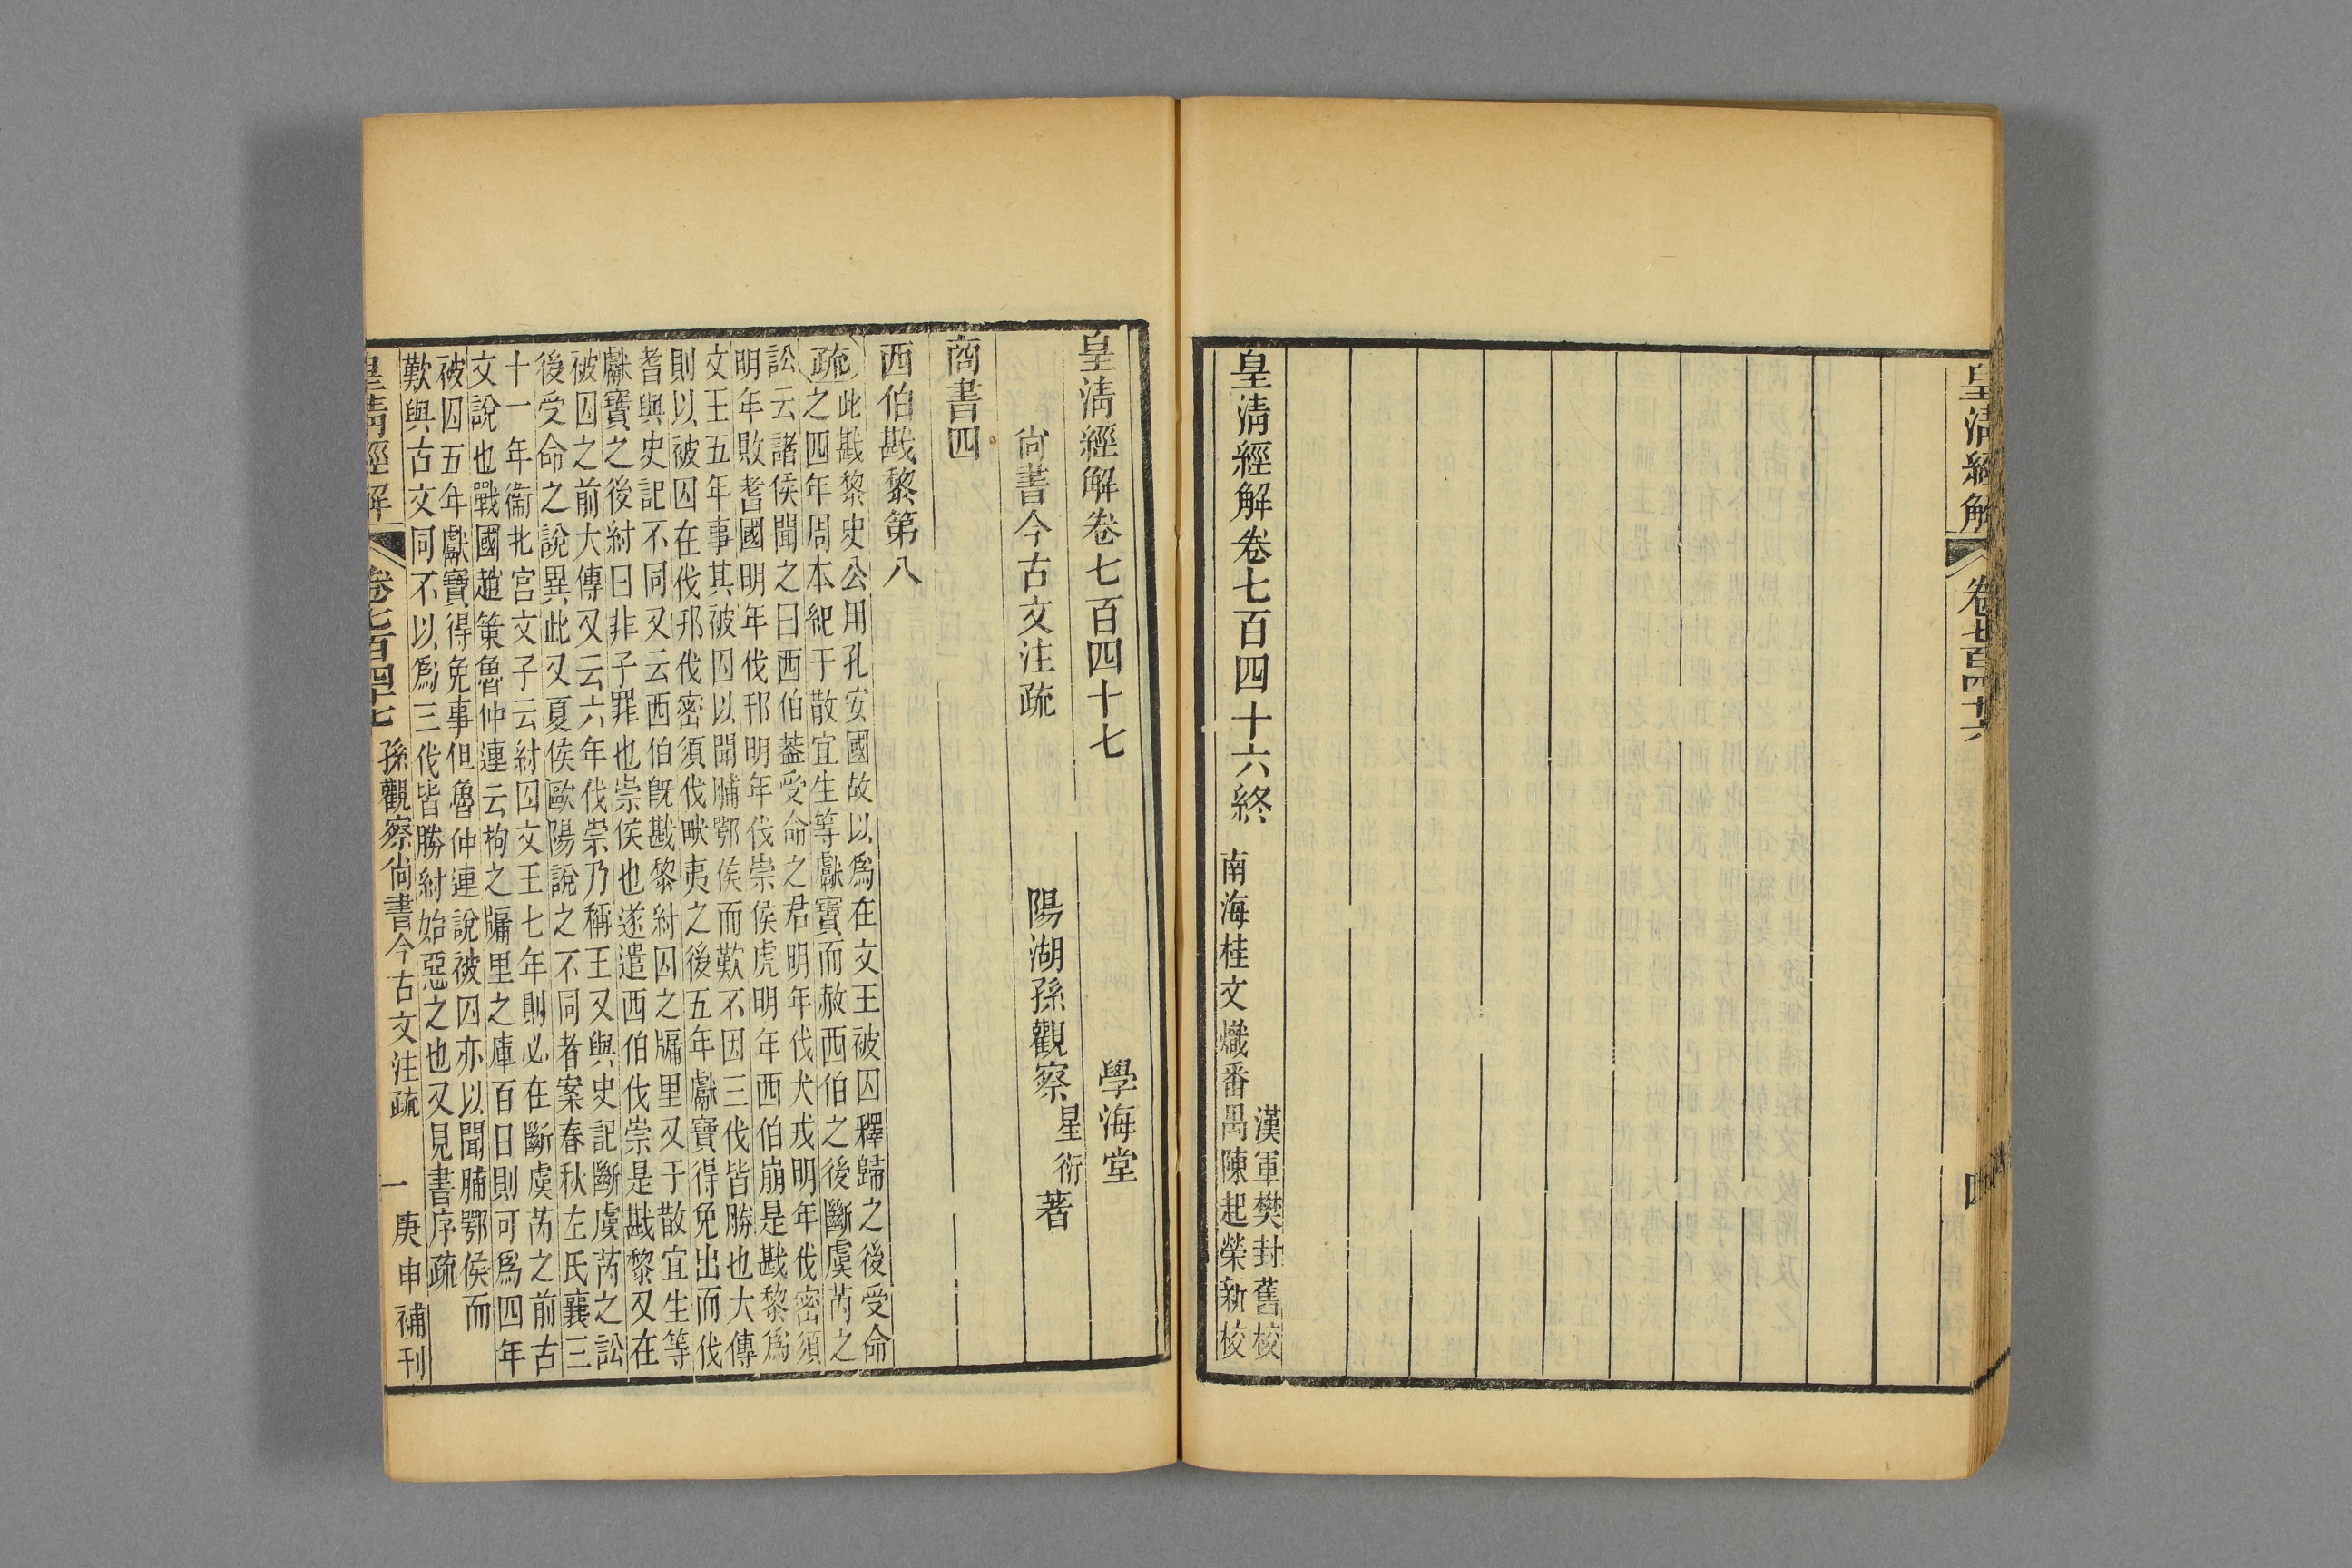 皇清經解
卷七百四十六
四
皇清經解卷七百四十六終
漢軍樊封舊校
南海桂文熾番禺陳起榮新校
皇清經解卷七百四十七
學海堂
尙書今古文注疏
陽湖孫觀察星衍著
商書四
西伯戡黎第八
疏
此戡黎史公用孔安國故以爲在文王被囚釋歸之後受命
之四年周本紀于散宜生等獻寶而赦西伯之後斷虞芮之
訟云諸侯聞之曰西伯葢受命之君明年伐犬戎明年伐密須
明年敗耆國明年伐邘明年伐崇侯虎明年西伯崩是戡黎爲
文王五年事其被囚以聞脯鄂侯而歎不因三伐皆勝也大傳
則以被囚在伐邘伐密須伐畎夷之後五年獻寶得免出而伐
耆與史記不同又云西伯旣戡黎紂囚之牖里又于散宜生等
獻寶之後紂曰非子罪也崇侯也遂遣西伯伐崇是戡黎又在
被囚之前大傳又云六年伐崇乃稱王又與史記斷虞芮之訟
後受命之說異此又夏侯歐陽說之不同者案春秋左氏襄三
十一年衞北宮文子云紂囚文王七年則必在斷虞芮之前古
文說也戰國趙策魯仲連云拘之牖里之庫百日則可爲四年
被囚五年獻寶得免事但魯仲連說被囚亦以聞脯鄂侯而
歎與古文同不以爲三伐皆勝紂始惡之也又見書序疏
皇清經解
卷七百四十七
孫觀察尙書今古文注疏
一
庚申補刊